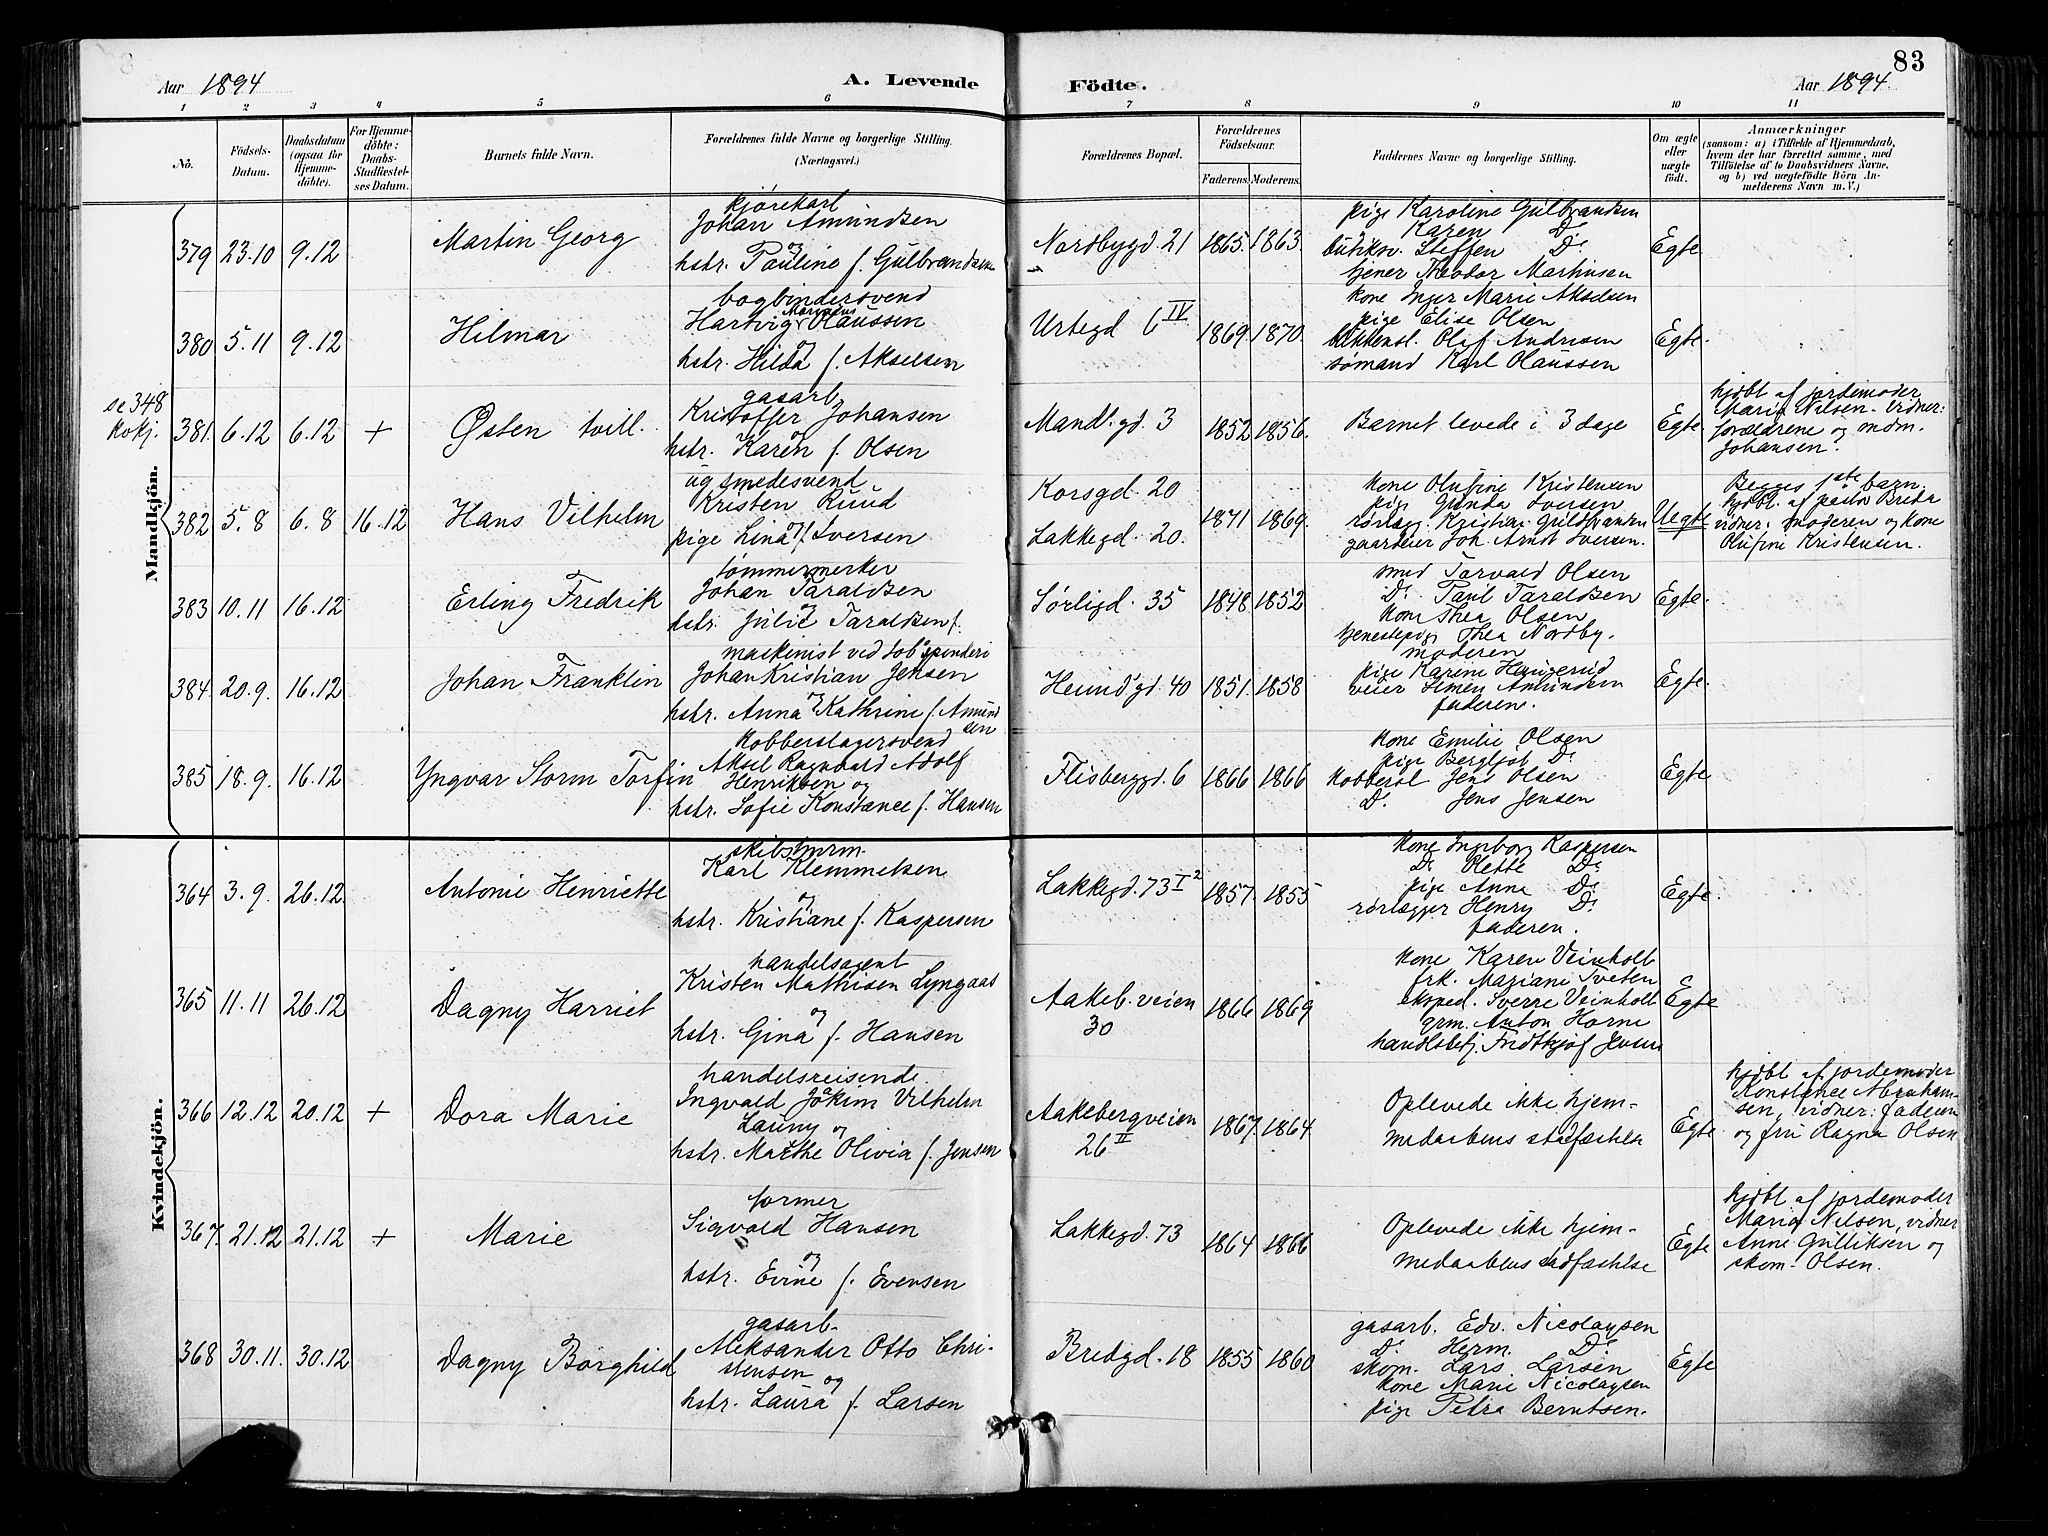 83
Aar 1894
A. Levende
Födte.
Aar 1894
1 2 3 4 5 6 7 8 9 10 11
No.
Födsels-
Datum.
Daabsdatum
(ogsaa for
Hjemme-
döbte).
For Hjemme-
döbte:
Daabs-
Stadfæstel-
ses Datum.
Barnets fulde Navn.
Forældrenes fulde Navne og borgerlige Stilling.
(Næringsvei.)
Forældrenes Bopæl.
Forældrenes
Födselsaar.
Faderens. Moderens.
Faddernes Navne og borgerlige Stilling.
Om ægte
eller
uægte
født.
Anmærkninger
(saasom: a) i Tilfælde af Hjemmedaab,
hvem der har forrettet samme, med
Tilföielse af to Daabsvidners Navne,
og b) ved uægtefödte Börn An-
melderens Navn m. V.)
Mandkjön.
379 23.10 9.12
Martin Georg
kjørekarl
Johan Amundsen
og
hstr. Pauline f. Gulbrandsen
Nordbygd. 21
1865. 1863.
pige Karoline Gulbrandsen
Karen
Steffen Do
tjener Theodor Marthinsen
Egte.
380 5.11 9.12
Hilmar
bogbindersvend
Marinius
Hartvig Olaussen
og
hstr. Hilda f. Akselsen
Urtegd 6 IV
1869. 1870.
kone Inger Marie Akselsen
pige Elise Olsen
Olaf Andresen
sømand Karl Olaussen
Egte.
se 348
kokj.
381. 6.12 6.12 +
Østen tvill.
gasarb.
Kristoffer Johansen
og
hstr. Karen f. Olsen
Mandl. gd. 3
1852 1856.
Barnet levede i 3 dage
Egte.
hjdbt af jordemoder
Maria Nilsen. vidner:
forældrene og mdm.
Johansen.
382 5.8 6.8 16.12
Hans Vilhelm
ug smedesvend
Kristen Ruud
og
pige Lina Iversen
Korsgd. 20
Lakkegd. 20.
1871 1869.
kone Olufine Kristensen
pige Gunda Iversen
rørlægg. Kristian
gaardeier Joh. Arndt Iversen.
Uegte
Begges 1ste barn.
hjdbt. af pastor Breda
vidner: moderen og kone
Olufine Kristensen.
383 10.11 16.12
Erling Fredrik
tømmermerker
Johan Taraldsen
og
hstr. Julie Taraldsen f.
Sørligd. 35
1848 1852
smed Torvald Olsen
Do Paul Taraldsen
kone Thea Olsen
tjenestepige Thea Nordby.
Egte.
384. 20.9. 16.12
Johan Franklin
maskinist ved tob. spinderi
Johan Kristian Jensen
og
hstr. Anna Kathrine f. Amund
sen
Heimd. gd. 40
1851. 1858
moderen
pige Karine Haugerud
veier Simen Amundsen
faderen.
Egte.
385 18.9. 16.12
Yngvar Storm Torfin
kobberslagersvend
Aksel Ragnvard Adolf
Henriksen og
hstr. Sofie Konstance f. Hansen
Flisberggd. 6
1866 1866
kone Emilie Olsen
pige Bergljot Do
kobbersl. Jens Olsen
Do Jens Jensen
Egte
Kvindekjön.
364 3.9. 26.12
Antonie Henriette
skibstmrm.
Karl Klemmetsen
og
hstr. Kristiane f. Kaspersen
Lakkegd. 73 I 2
1857. 1855
kone Ingeborg Kaspersen
Do Olette Do
pige Anna Do
rørlægger Henry Do
faderen.
Egte.
365 11.11 26.12
Dagny Harriet
handelsagent
Kristen Mathisen Lyngaas
og
hstr. Gina f. Hansen
Aakeb. veien
30
1866 1869
kone Karen Veinholt
frk. Mariane Tveten
eksped. Sverre Veinholt
grm. Anton Horne
handlsbetj. Fridtkjof Jensen
Egte
366 12.12 20.12 +
Dora Marie
handelsreisende
Ingvald Joakim Vilhelm
Launy og
hstr. Marthe Olivia f. Jensen
Aakebergveien
26 II
1867. 1864
Oplevede ikke hjem-
medaabens stadfæstelse
Egte
hjdbt af jordemoder
Konstance Abraham-
sen, vidner: faderen
og fru Ragna Olsen
367. 21.12 21.12 +
Marie
former
Sigvald Hansen
og
hstr. Evine f. Evensen
Lakkegd. 73
1864 1866
Oplevede ikke hjem-
medaabens stadfæstelse
Egte
hjdbt af jordemoder
Maria Nilsen, vidner
Anne Gulliksen og
skom. Olsen.
368 30.11. 30.12
Dagny Borghild
gasarb.
Aleksander Otto Chri-
stensen og
hstr. Laura f. Larsen
Bredgd. 18
1855 1860
gasarb. Edv. Nicolaysen
Do Herm. Do
skom. Lars Larsen
kone Marie Nicolaysen
pige Petra Berntsen.
Egte